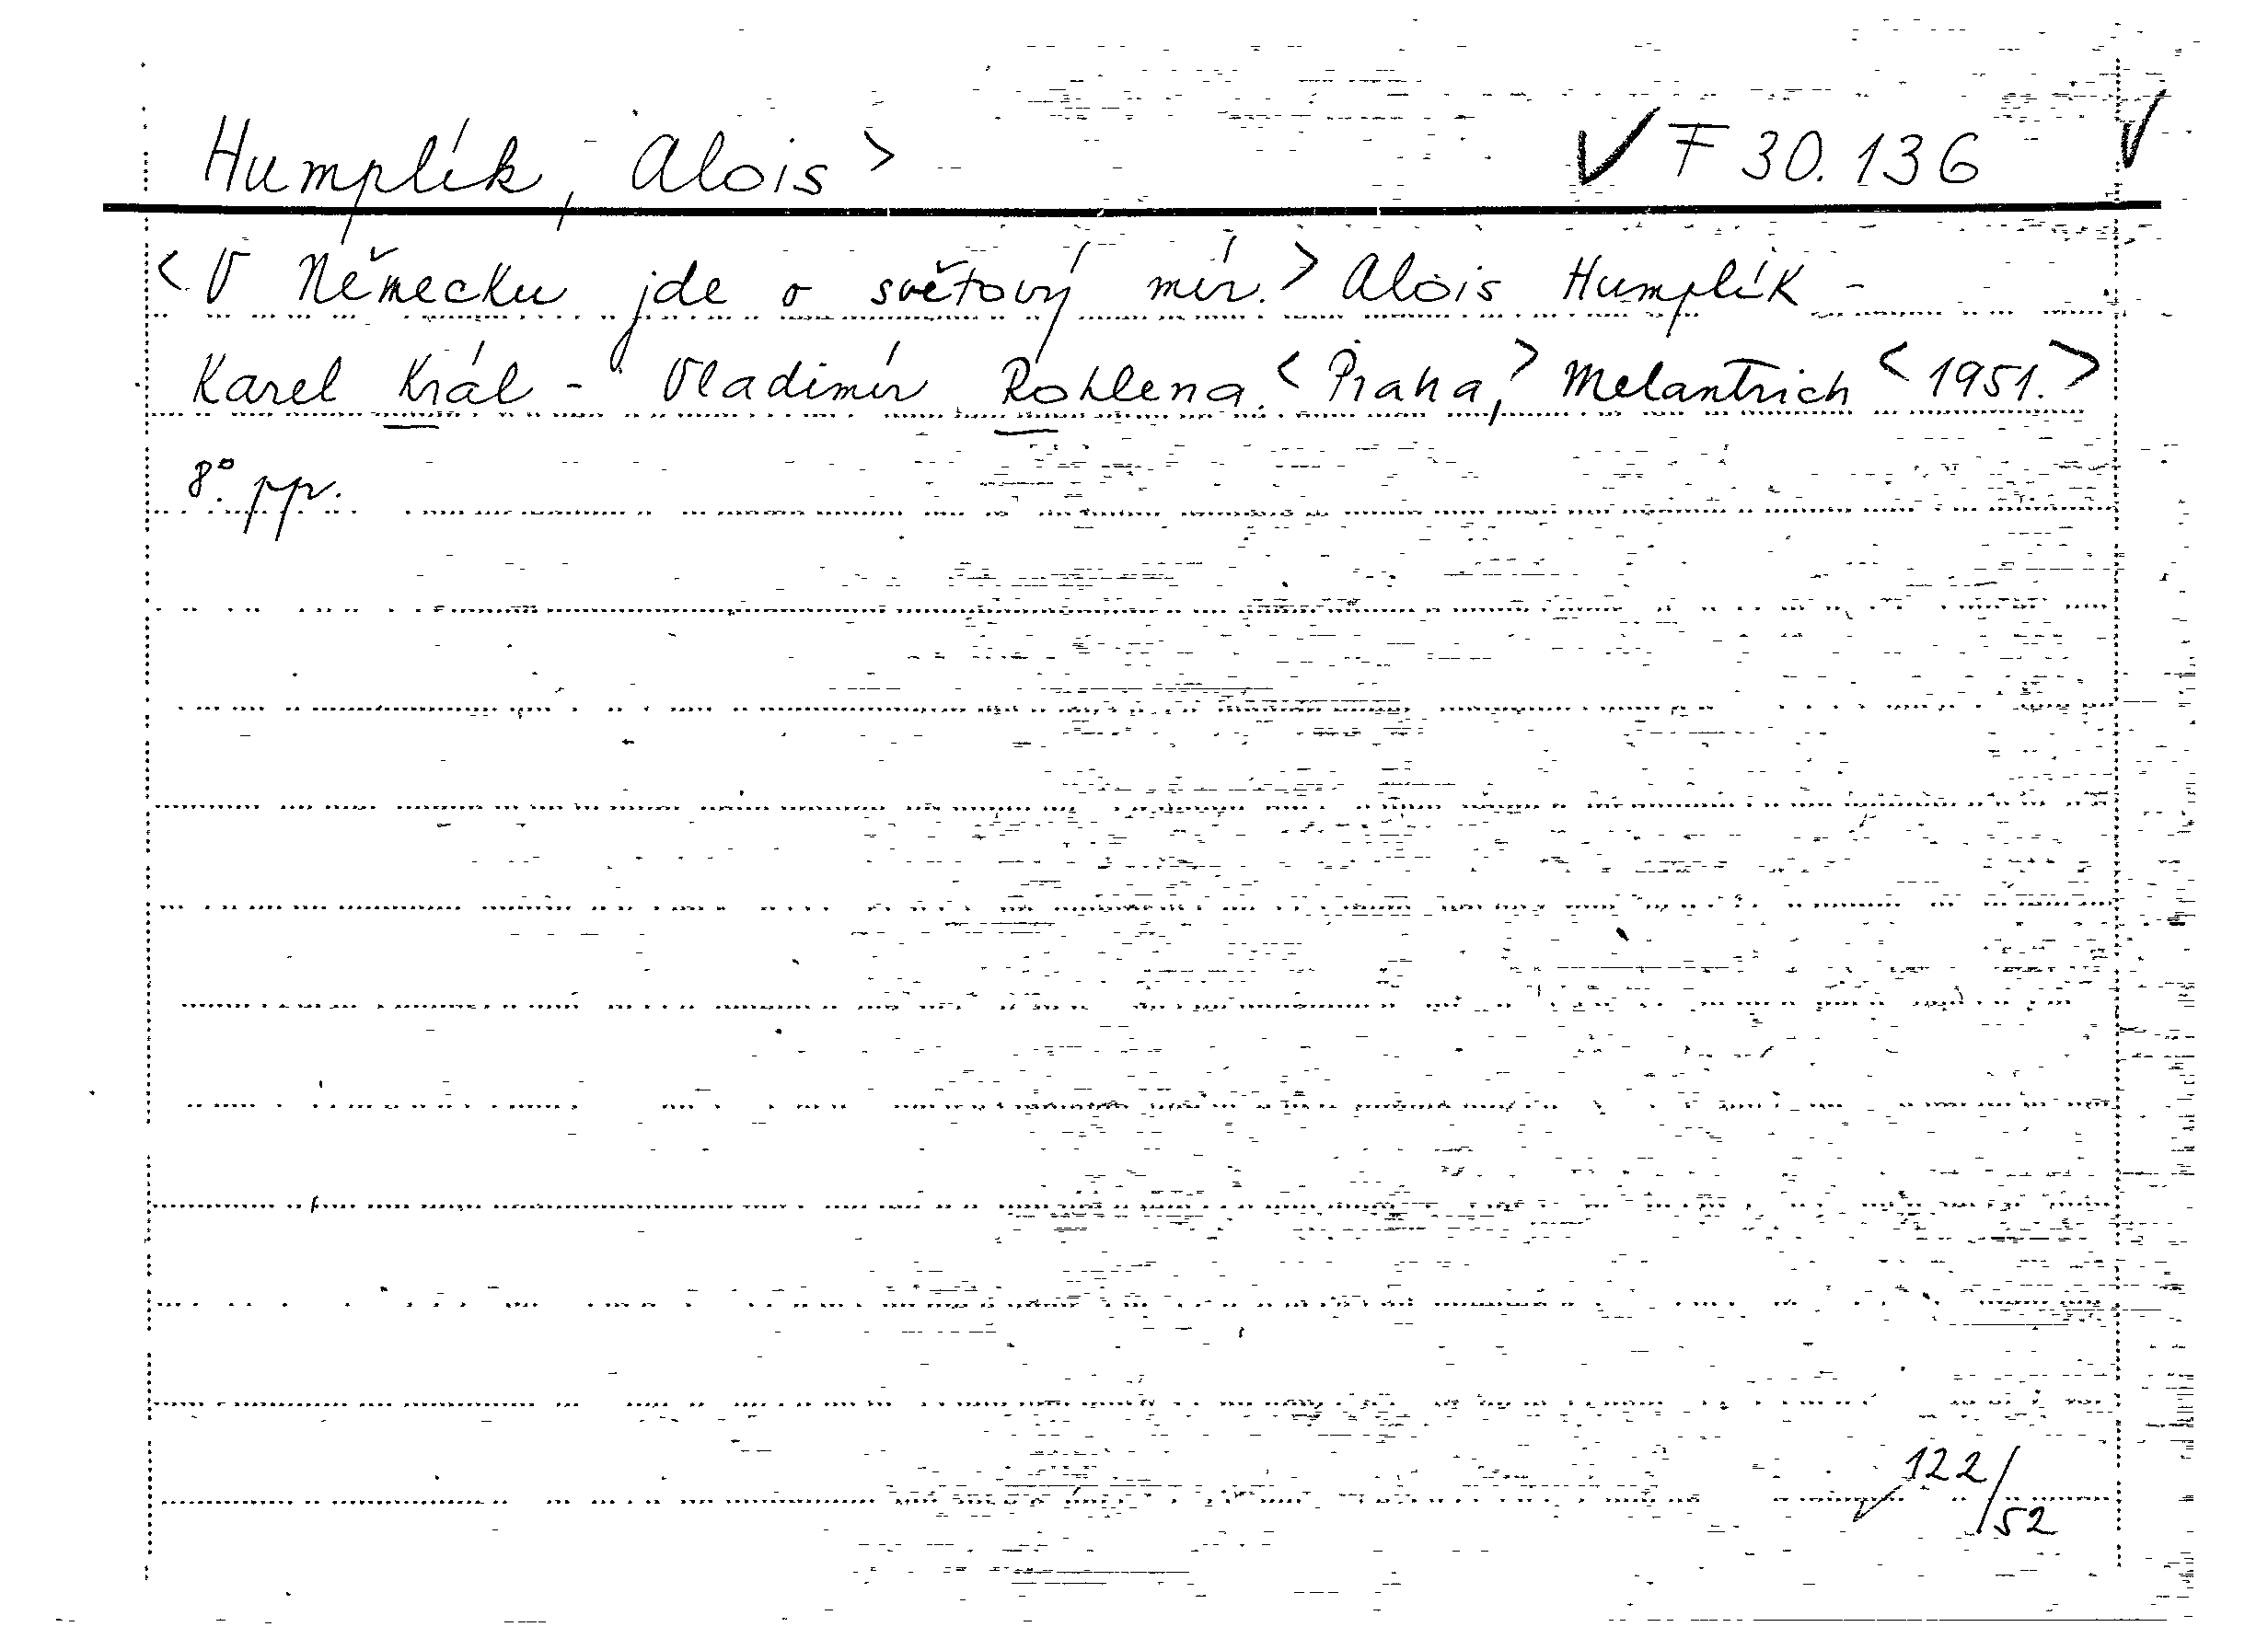 Humplík, Alois > ✓ F 30.136 ✓
< V Německu jde o světový mír. > Alois Humplík -
Karel Král - Vladimír Rohlena. < Praha, > Melantrich < 1951. >
8°. pp.
122/52